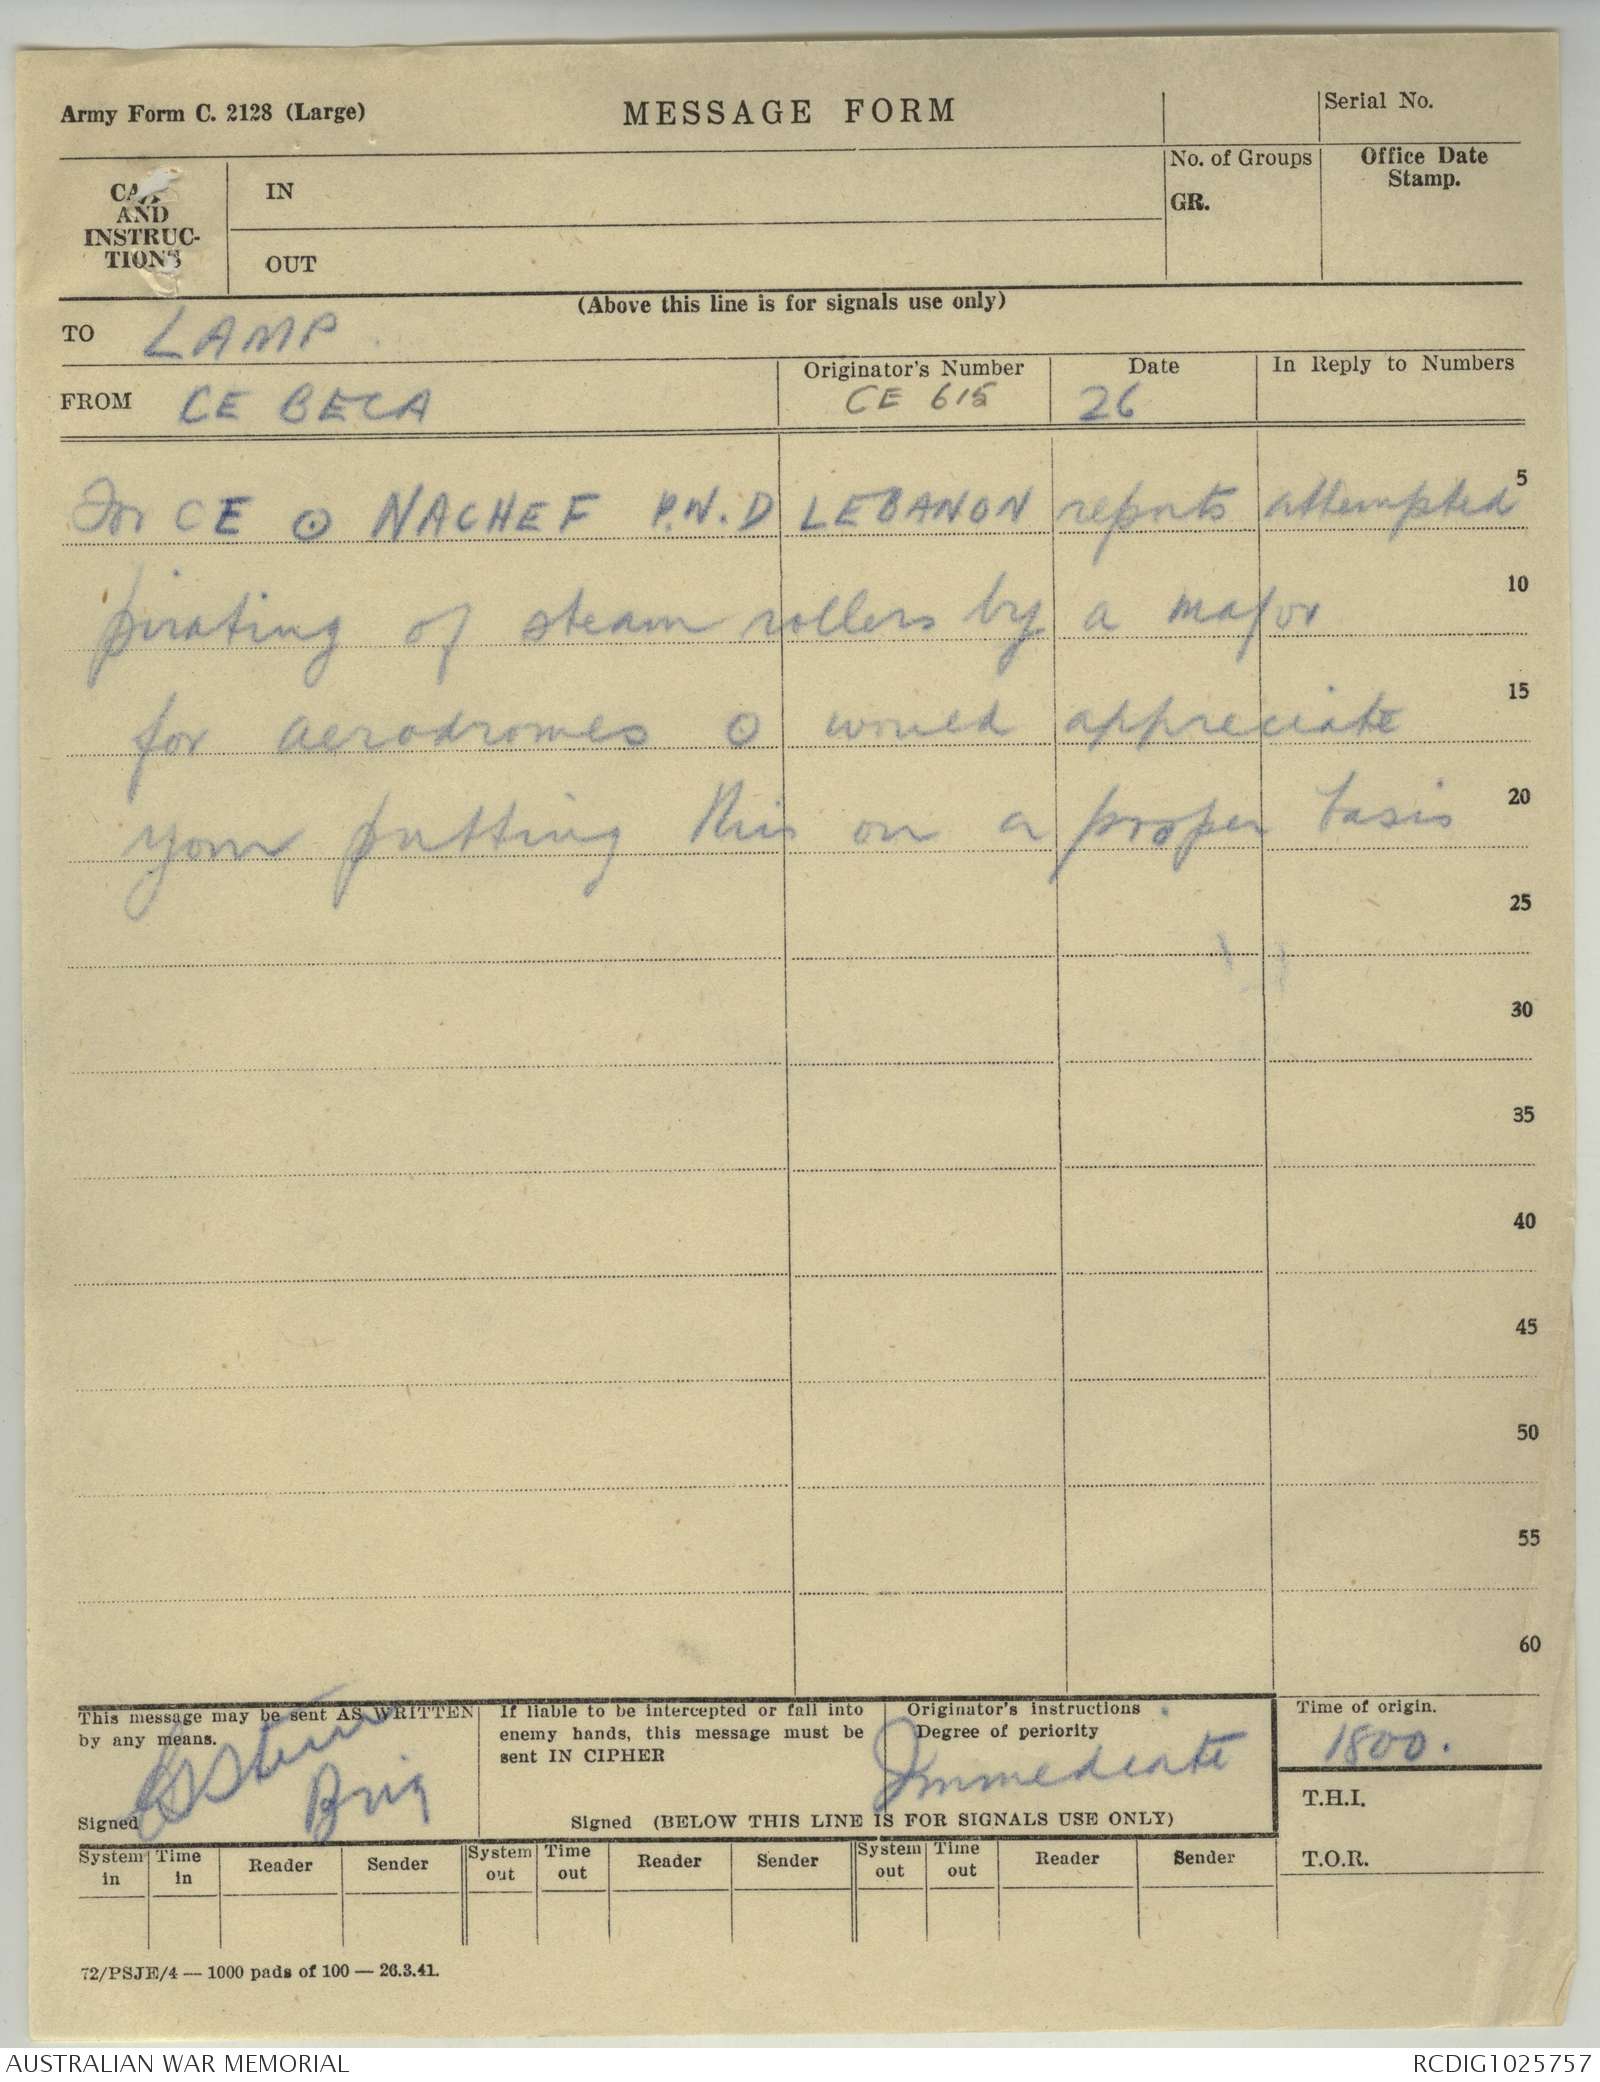 Army Form C. 2128 (Large)
MESSAGE FORM
Serial No.
CALL
AND
INSTRUC-
TIONS
IN
OUT
No. of Groups
GR.
Office Date
Stamp.
(Above this line is for signals use only)
TO LAMP
FROM CE BECA
Originator's Number
CE 615
Date
26
In Reply to Numbers
For CE ⊙ NACHEF P.N.D LEBANON reports attempted
5
pirating of steam rollers by a major
10
for aerodromes ⊙ would appreciate
15
your putting this on a proper basis
20
25
30
35
40
45
50
55
60
This message may be sent AS WRITTEN
by any means.
Signed
Brig
If liable to be intercepted or fall into
enemy hands, this message must be
sent IN CIPHER
Signed (BELOW THIS LINE IS FOR SIGNALS USE ONLY)
Originator's instructions
Degree of periority
Immediate
Time of origin.
1800.
T.H.I.
T.O.R.
System in Time in Reader Sender System out Time out Reader Sender System out Time out Reader Sender
72/PSJE/4 — 1000 pads of 100 — 26.3.41.
AUSTRALIAN WAR MEMORIAL
RCDIG1025757